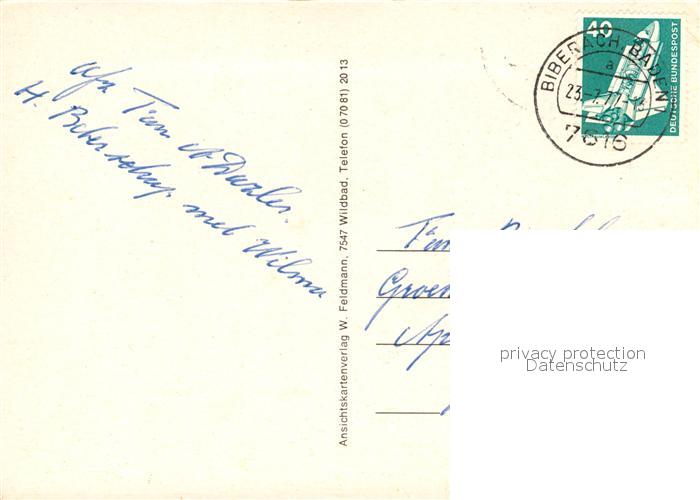 afz. Tini
H. Biberschap. met Wilma
Ansichtskartenverlag W. Feldmann, 7547 Wildbad, Telefon (0 70 81) 20 13
40
DEUTSCHE BUNDESPOST
BIBERACH, BADEN 1
a
23.-7.77
7616
Groen
Ap
privacy protection
Datenschutz